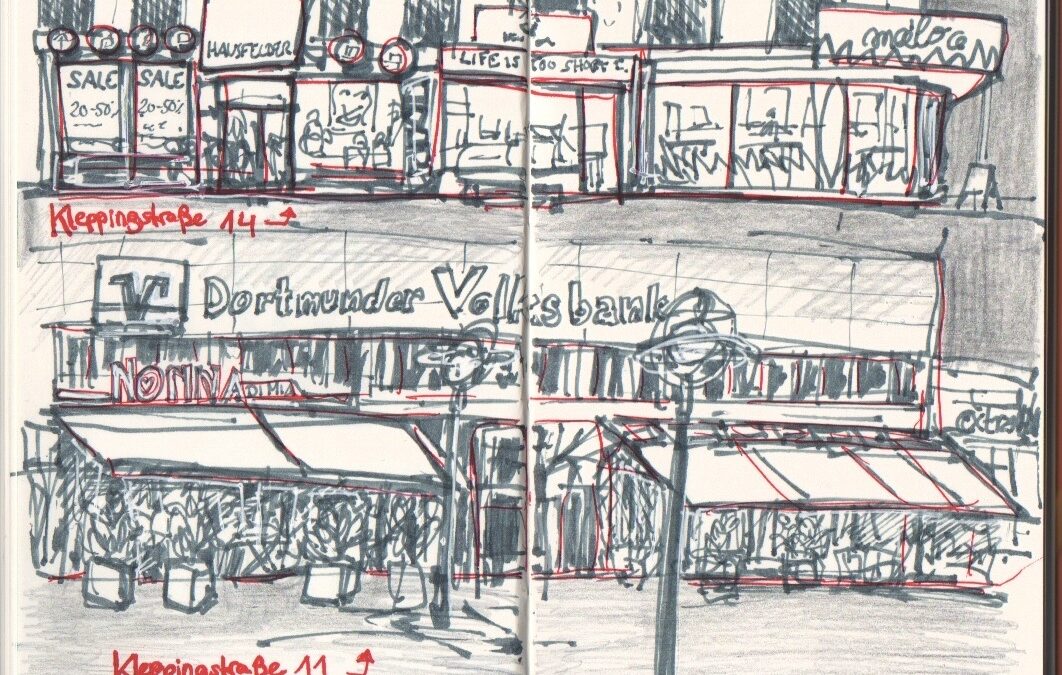 P
HAUSFELDER
LIFE IS TOO SHORT
maloa
SALE SALE
20-50% 20-50%
Kleppingstraße 14
Dortmunder Volksbank
NONNA
extra
Kleppingstraße 11